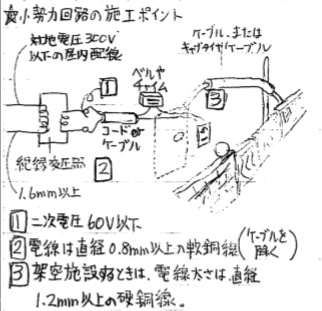 最小勢力回路の施工ポイント
対地電圧300V
以下の屋内配線
ケーブル、または
キャブタイヤケーブル
1
ベルや
チャイム
3
コードor
ケーブル
絶縁変圧器
2
1.6mm以上
1 二次電圧60V以下
2 電線は直径0.8mm以上の軟銅線(ケーブルを
除く)
3 架空施設するときは、電線太さは、直径
1.2mm以上の硬銅線。